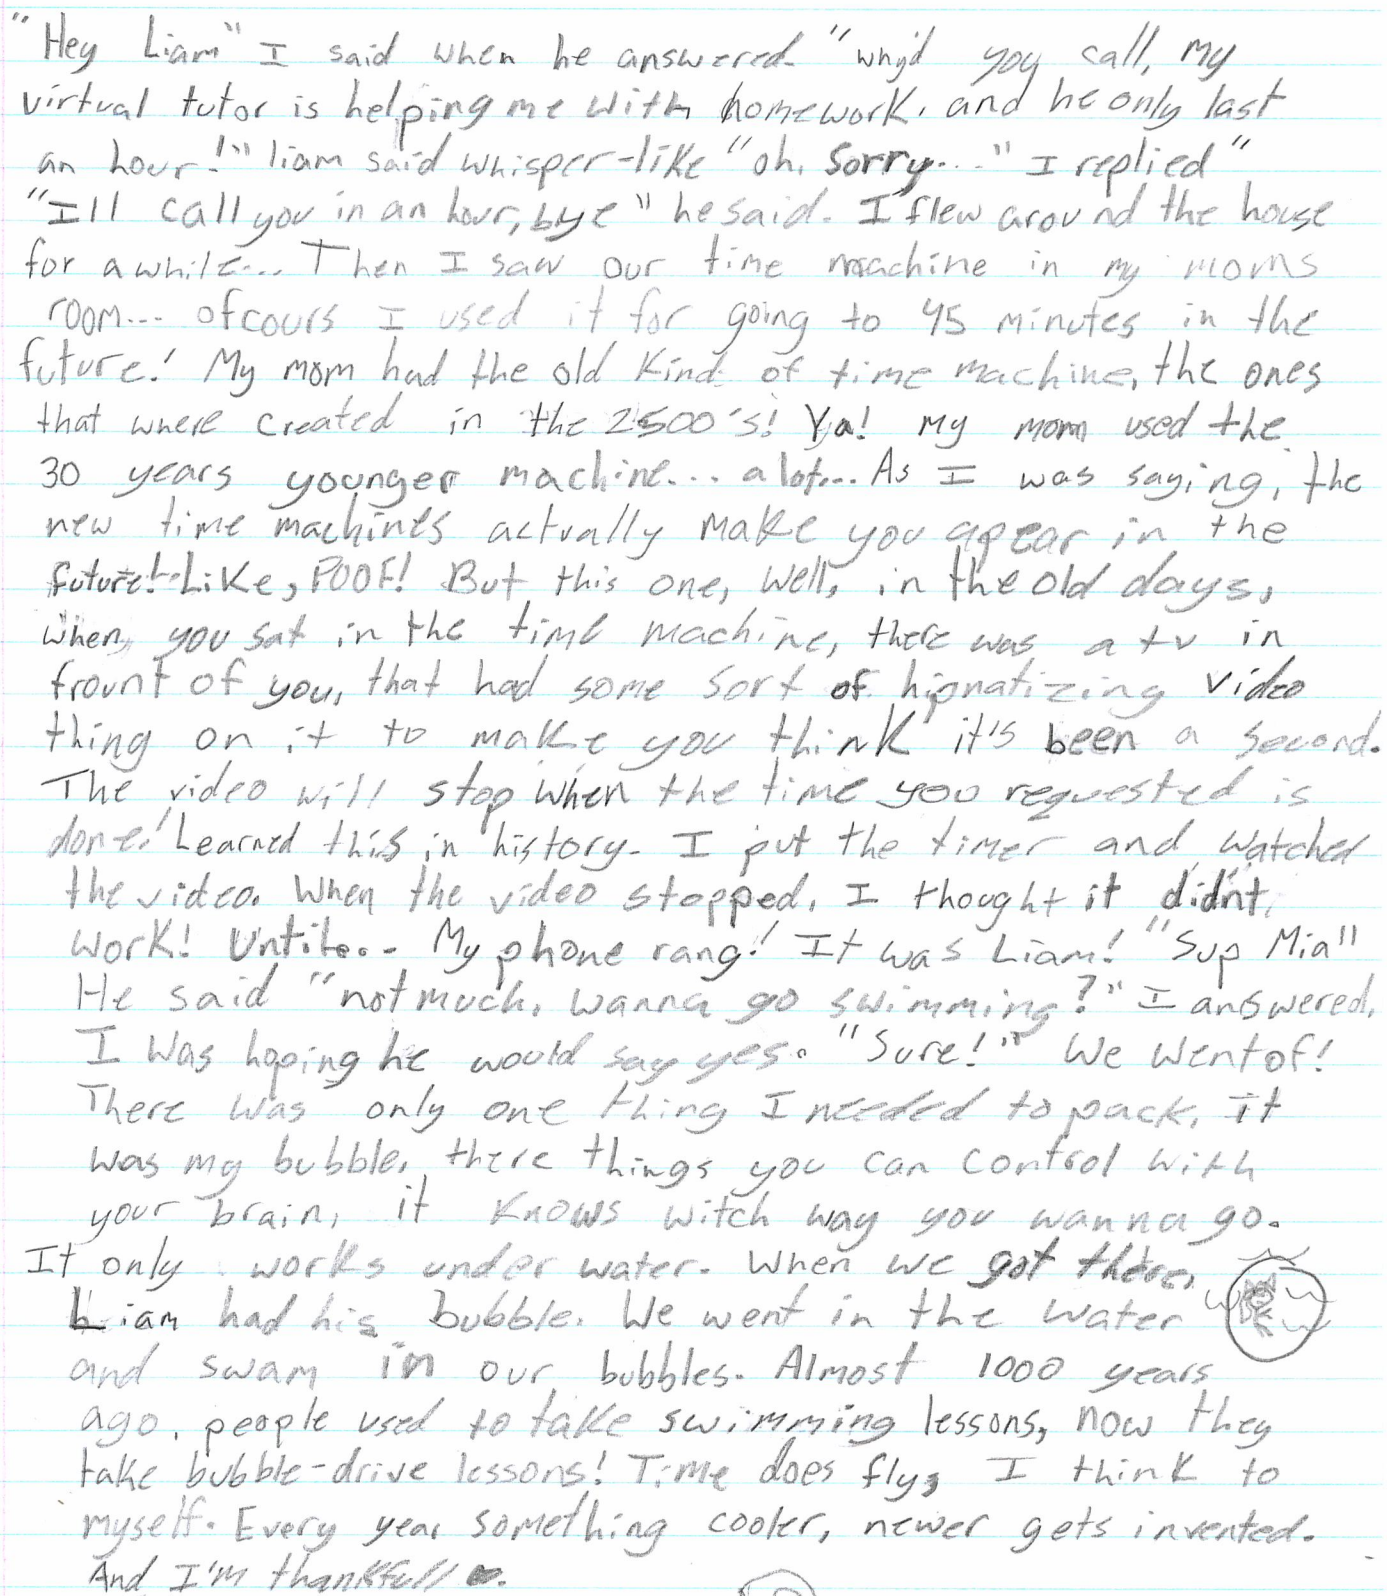 "Hey Liam" I said when he answered. "why'd you call, my
virtual tutor is helping me with homework, and he only last
an hour!" liam said whisper-like "oh, sorry...." I replied"
"I'll call you in an hour, bye" he said. I flew around the house
for awhile... Then I saw our time machine in my moms
room... ofcours I used it for going to 45 minutes in the
future! My mom had the old kind of time machine, the ones
that where created in the 2500's! Ya! My mom used the
30 years younger machine... alot... As I was saying, the
new time machines actually make you apear in the
future! Like, POOF! But this one, well, in the old days,
when, you sat in the time machine, there was a tv in
frount of you, that had some sort of hipnatizing video
thing on it to make you think it's been a second.
The video will stop when the time you requested is
done! Learned this in history. I put the timer and watched
the video. When the video stopped, I thought it didn't
work! Until... My phone rang! It was Liam! "Sup Mia"
He said "not much, wanna go swimming?" I answered,
I was hoping he would say yes. "Sure!" We went of!
There was only one thing I needed to pack, it
was my bubble, there things you can control with
your brain, it knows witch way you wanna go.
It only works under water. When we got there,
Liam had his bubble. We went in the water
and swam in our bubbles. Almost 1000 years
ago, people used to take swimming lessons, now they
take bubble-drive lessons! Time does fly, I think to
myself. Every year something cooler, newer gets invented.
And I'm thankfull.